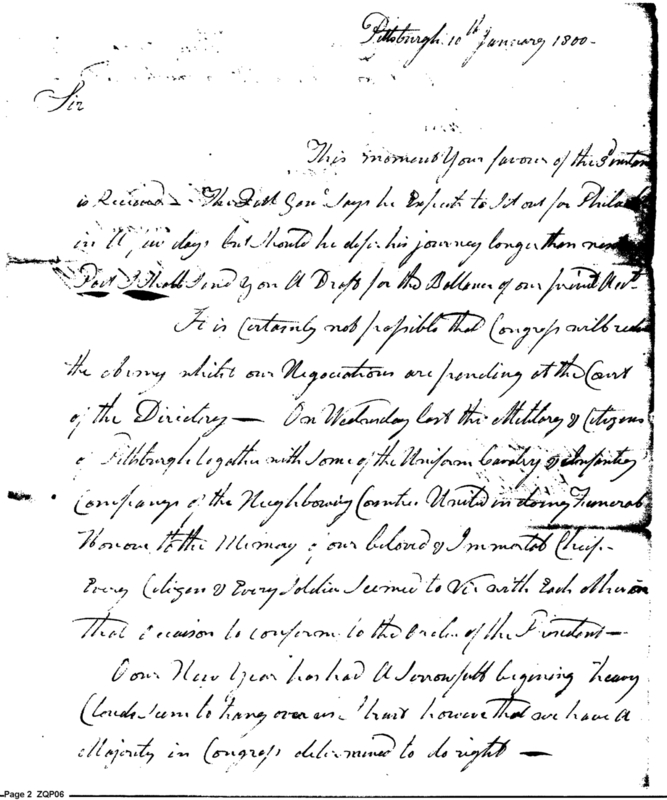 Pittsburgh 10th January 1800-
Sir
This moment Your favour of the 3d
is Received - The says he Expects to Set out for
in A few days but should he defer his journey longer than
Post I Shall Send You A Draft for the Ballance of our
It is Certainly not possible that Congress will
the whilst our Negociations are pending at the Court
of the Directory — On Wednesday last the Military & Citizens
of Pittsburgh together with some of the Uniform Cavalry & Infantry
Companys of the Neighbouring Counties United in doing Funeral
Honour to the Memory of our beloved & Immortal Chief-
Every Citizen & Every Soldier Seemed to Vie with Each other on
that Occasion to conform to the Order of the President —
our New Year has had A Sorrowfull begining heavy
Clouds Seem to hang over us I trust however that we have A
Majority in Congress determined to do right —
Page 2 ZQP06